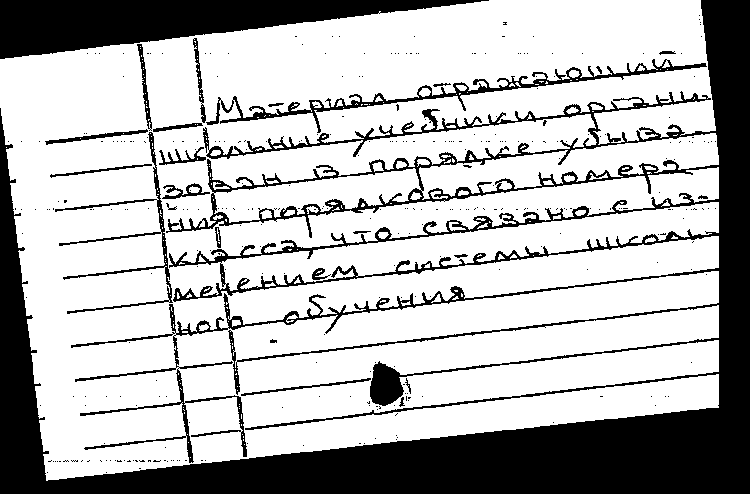 Материал, отражающий
школьные учебники, органи-
зован в порядке убыва-
ния порядкового номера
класса, что связано с из-
менением системы школь-
ного обучения